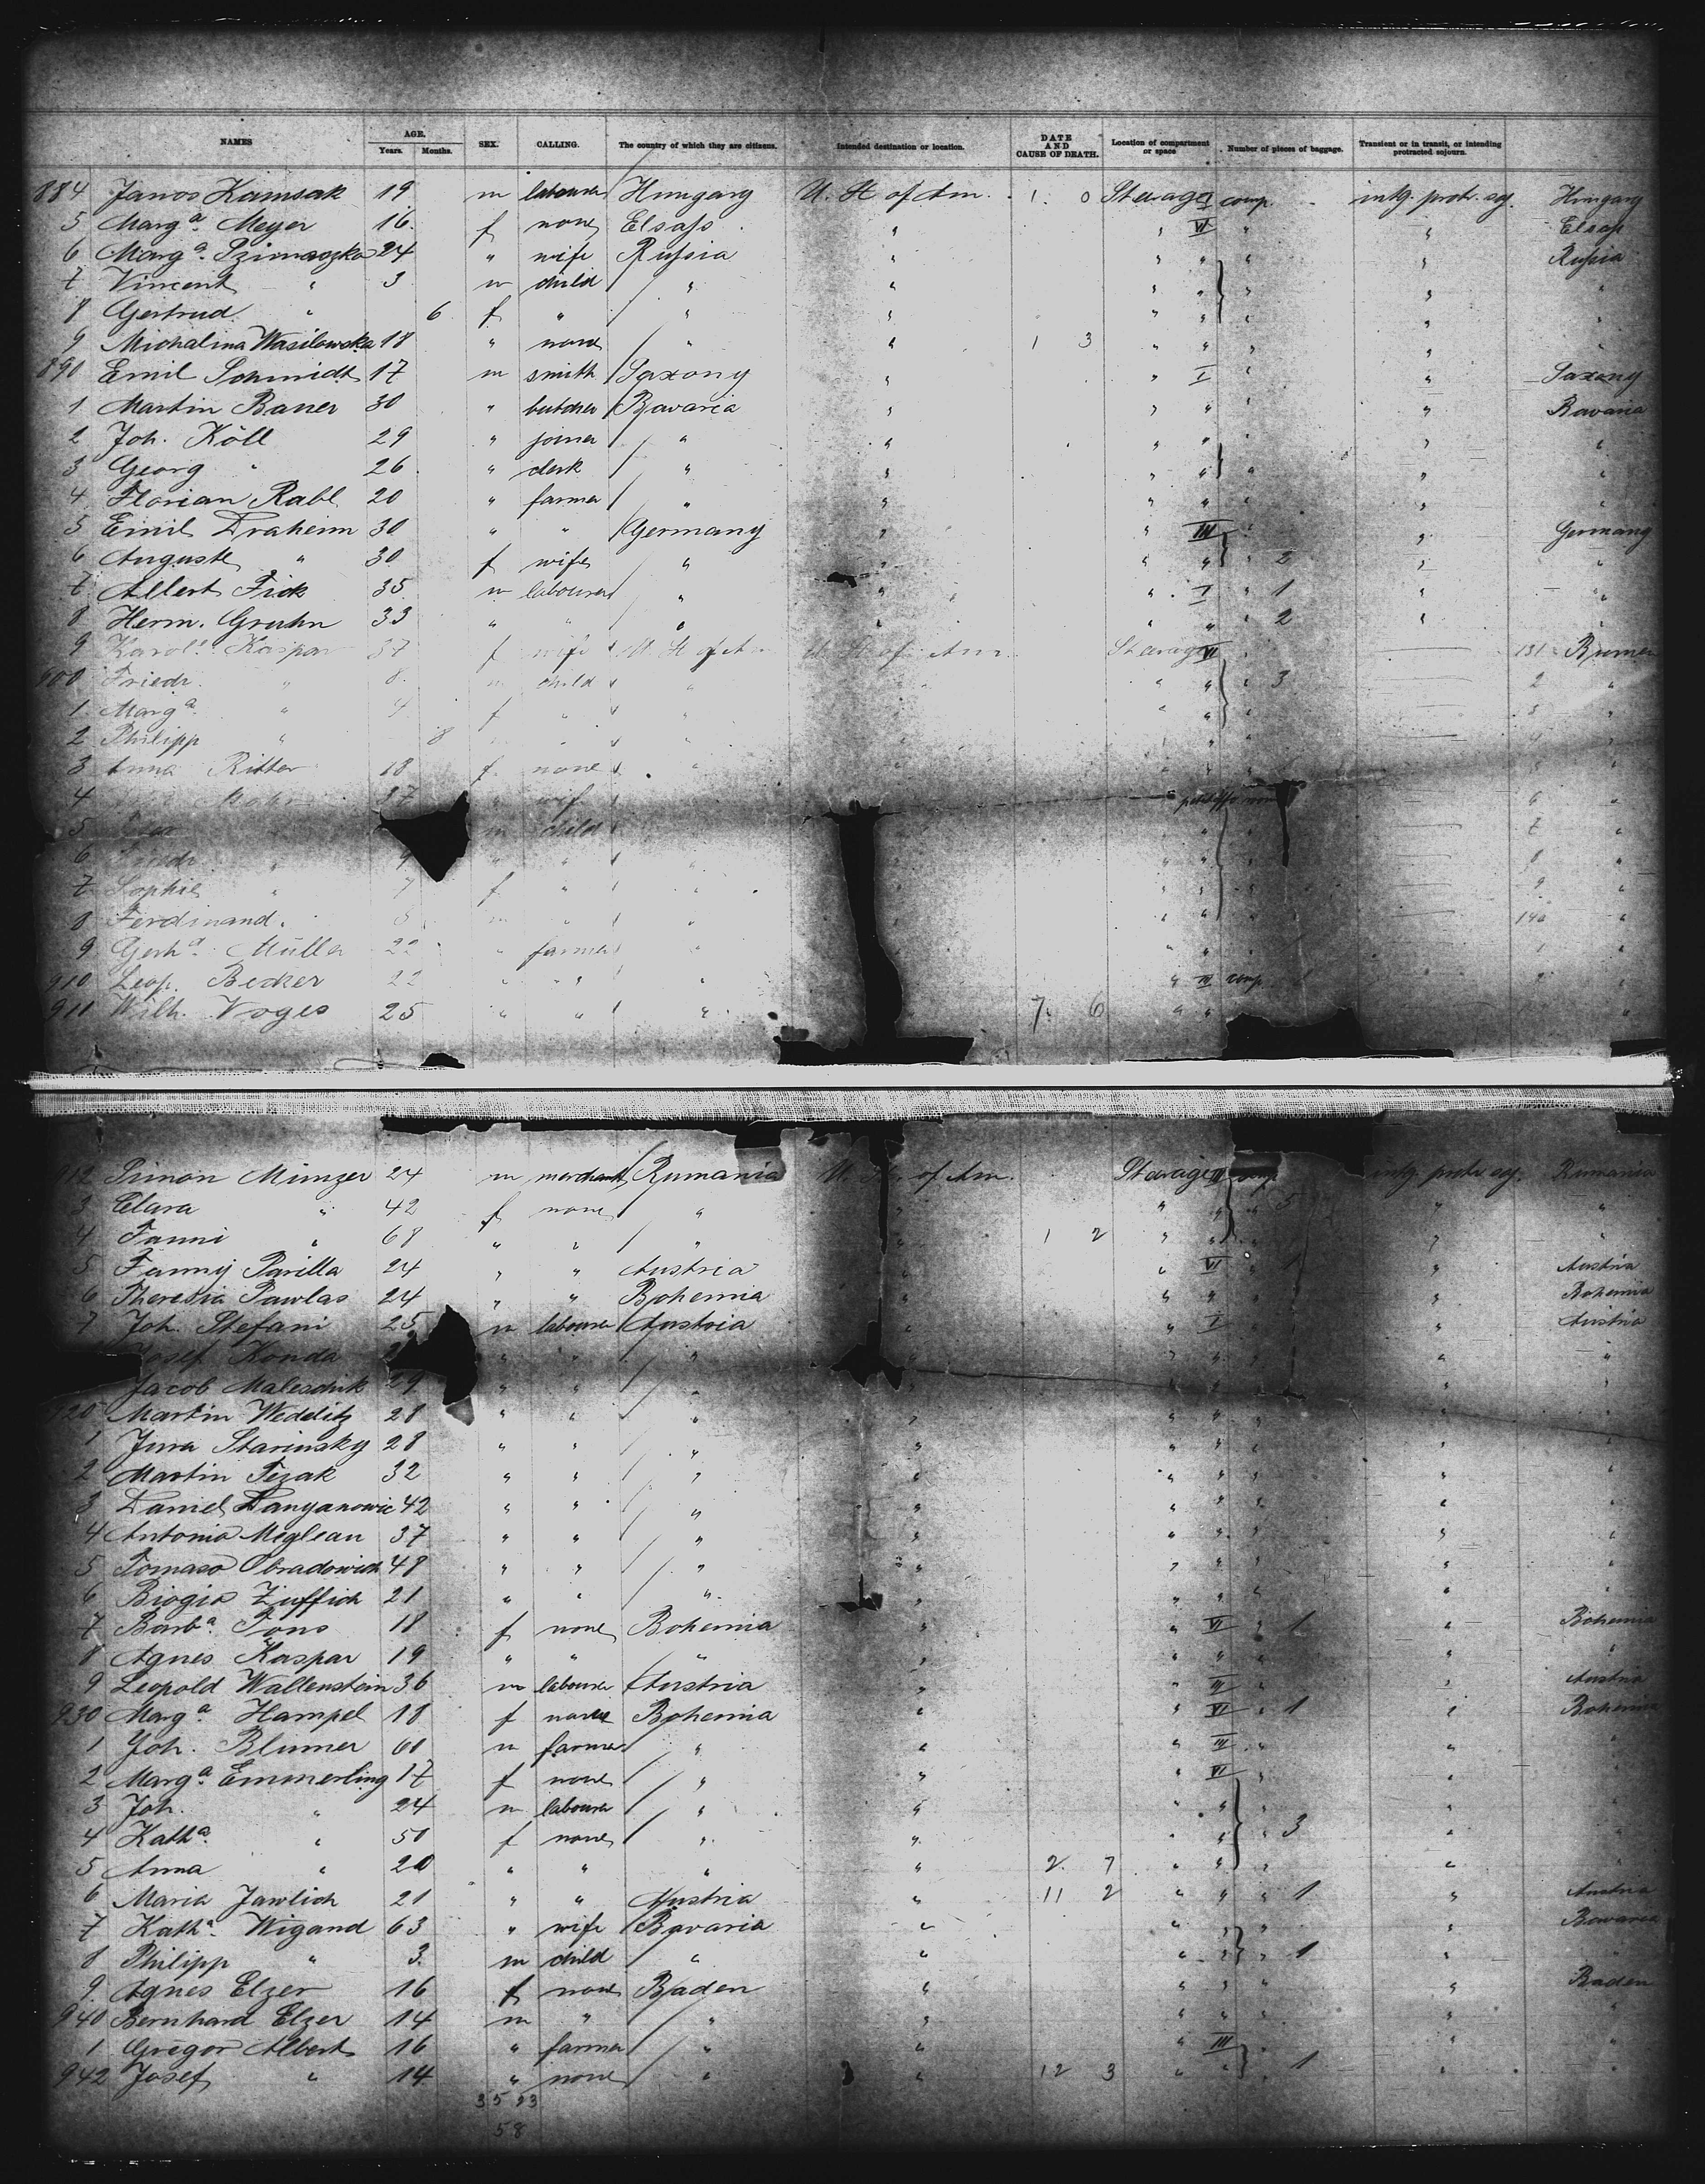 NAMES AGE. Years. Months. SEX. CALLING. The country of which they are citizens. Intended destination or location. DATE AND CAUSE OF DEATH. Location of compartment or space Number of pieces of baggage. Transient or in transit, or intending protracted sojourn.
884 Janos Kamsak 19 m labourer Hungary U. St of Am. 1. 0 Steerage I comp. intg. protr. soj. Hungary
5 Marg.a Meyer 16. f none Elsass " " VI " " Elsass
6 Marg.a 24 " wife Russia " " " " " Russia
7 Vincent " 3 m child " " " " " " "
8 Gertrud " 6 f " " " " " " " "
9 Michalina Wasilowska 18 " none " " 1 3 " " " " "
890 Emil Schmidt 17 m smith Saxony " " I " " Saxony
1 Martin Bauer 30 " butcher Bavaria " " " " " Bavaria
2 Joh. Köll 29 " joiner " " " " " " "
3 Georg " 26 " clerk " " " " " " "
4 Florian Rabl 20 " farmer " " " " " " "
5 Emil Draheim 30 " " Germany " " III " " Germany
6 Auguste " 30 f wife " " " " " 2 " "
7 Albert Fick 35 m labourer " " " I " 1 " "
8 Herm. Gruhn 33 " " " " " " " 2 " "
9 Karol. Kaspar 37 f wife U. St of Am U. St of Am. Steerage VI " 131 Bremen
900 Friedr. " 8. m child " " " " 3 2 "
1 Marg.a " 4 f " " " " " 3 "
2 Philipp " 8 " " " " 4 "
3 Anna Ritter 18 f none " " " 5 "
4 Mohr 37 " wife 6 "
5 m child " 7 "
6 Friedr. " 9 " " " " " " 8 "
7 Sophie " 7 f " " " " " 9 "
8 Ferdinand " m " " " " 140 "
9 Gerh.d Müller 22 " farmer " " " 1 "
910 Leop. Becker 22 " " " " III comp. "
911 Wilh. Voges 25 " " " 7. 6 " " "
912 Simon Münzer 24 m merchant Rumania U. St. of Am. Steerage comp intg. protr. soj. Rumania
3 Clara " 42 f none " " " " " 5 " "
4 Fanni " 68 " " " " 1 2 " " " "
5 Fanny Parilla 24 " " Austria " " VI " 1 " Austria
6 Theresia Pawlas 24 " " Bohemia " " " " Bohemia
7 Joh. Stefani 25 m labourer Austria " " I " " Austria
Josef Konda " " " " " " " "
Jacob Maleschik 29 " " " " " " "
920 Martin Wedditz 28 " " " " " " " " "
1 Jura Starinsky 28 " " " " " " " " "
2 Martin Tezak 32 " " " " " " " " "
3 Daniel Danyanowic 42 " " " " " " " " "
4 Antonio Miglean 37 " " " " " " " " "
5 Tomaso Obradowich 48 " " " " " " " " "
6 Biogio Ziuffich 21 " " " " " " " " "
7 Barb.a Tons 18 f none Bohemia " " VI " 1 " Bohemia
8 Agnes Kaspar 19 " " " " " " " " "
9 Leopold Wallenstein 36 m labourer Austria " " III " " Austria
930 Marg.a Hampel 18 f none Bohemia " " VI " 1 " Bohemia
1 Joh. Blumer 60 m farmer " " " III " " "
2 Marg.a Emmerling 17 f none " " " VI " " "
3 Joh. " 24 m labourer " " " " " "
4 Kath.a " 50 f none " " " " " 3 " "
5 Anna " 20 " " " " 2. 7 " " " " "
6 Maria Jawlich 21 " " Austria " 11 2 " " " 1 " Austria
7 Kath.a Wigand 63 " wife Bavaria " " " " " Bavaria
8 Philipp " 3. m child " " " " " 1 " "
9. Agnes Elzer 16 f none Baden " " " " " Baden
940 Bernhard Elzer 14 m " " " " " " " "
1 Gregor Albert 16 " farmer " " " III " " "
942 Josef " 14 " none " " 12 3 " " " 1 " "
35 23
58